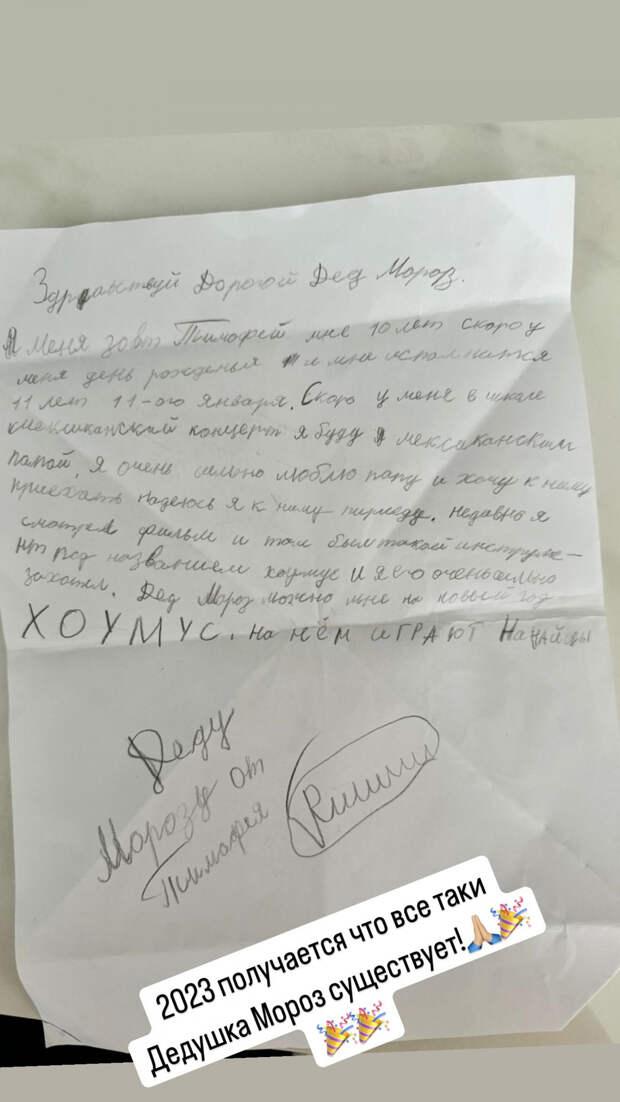 Здравствуй Дорогой Дед Мороз.
Меня зовт Тимофей мне 10 лет скоро у
меня день рожденья и мне исполнится
11 лет 11-ого января. Скоро у меня в школе
мексиканский концерт я буду мексаканским
папой. Я очень сильно люблю папу и хочу к нему
приехать надеюсь я к нему приеду. Недавно я
смотрел фильм и там был такой инструме-
нт под названием хоумус и я его очень сильно
захотел. Дед Мороз можно мне на новый год
ХОУМУС. На нём ИГРАЮТ НаНАЙцы
Деду
Морозу от
Тимофея
2023 получается что все таки
Дедушка Мороз существует!🙏🏼🎉
🎉🎉